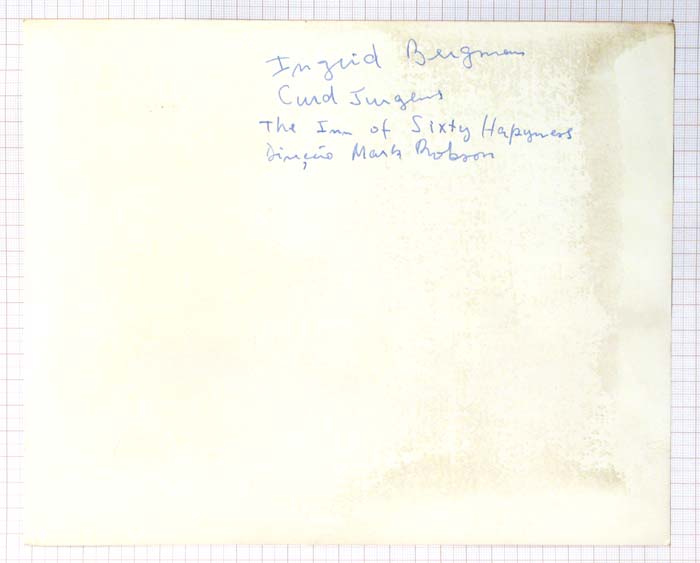 Ingrid Bergman
Curd Jurgens
The Inn of Sixty Hapyness
Direção Mark Robson